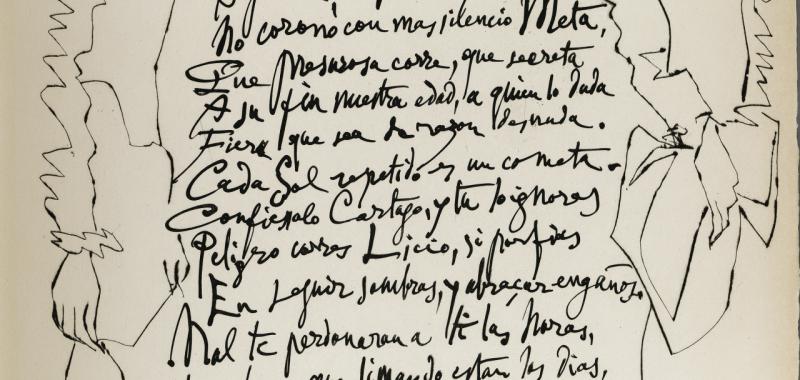 no coronó con mas silencio Meta,
Que Presurosa corre, que secreta
A su fin nuestra edad, a quien lo duda
Fiera que sea de razon desnuda.
Cada Sol repetido es un cometa.
Confiessalo Cartago, y tu lo ignoras
Peligro corres Licio, si porfias
En seguir sombras, y abraçar engaños.
Mal te perdonaran a ti las horas,
que limando estan los dias,